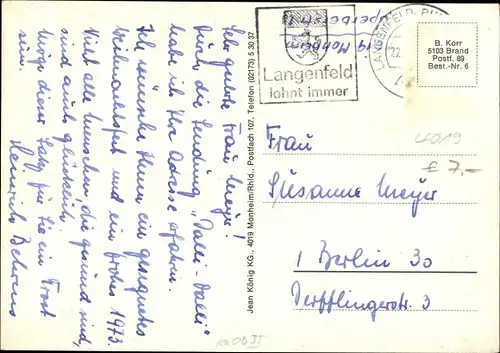 Sehr geehrte Frau Meyer!
Durch die Sendung „Dalli-Dalli"
habe ich Ihre Adresse erfahren.
Ich wünsche Ihnen ein gesegnetes
Weihnachtsfest und ein frohes 1973.
Nicht alle Menschen die gesund sind,
sind auch glücklich.
Möge dieser Satz für Sie ein Trost
sein.
Heinrich Behrens
Jean König KG., 4019 Monheim/Rhld., Postfach 107, Telefon (02173) 5 30 37
Monheim
Langenfeld
lohnt immer
LANGENFELD, RHL
22.
B. Korr
5103 Brand
Postf. 89
Best.-Nr. 6
4019
€ 7.-
Frau
Susanne Meyer
1 Berlin 30
Derfflingerstr. 3